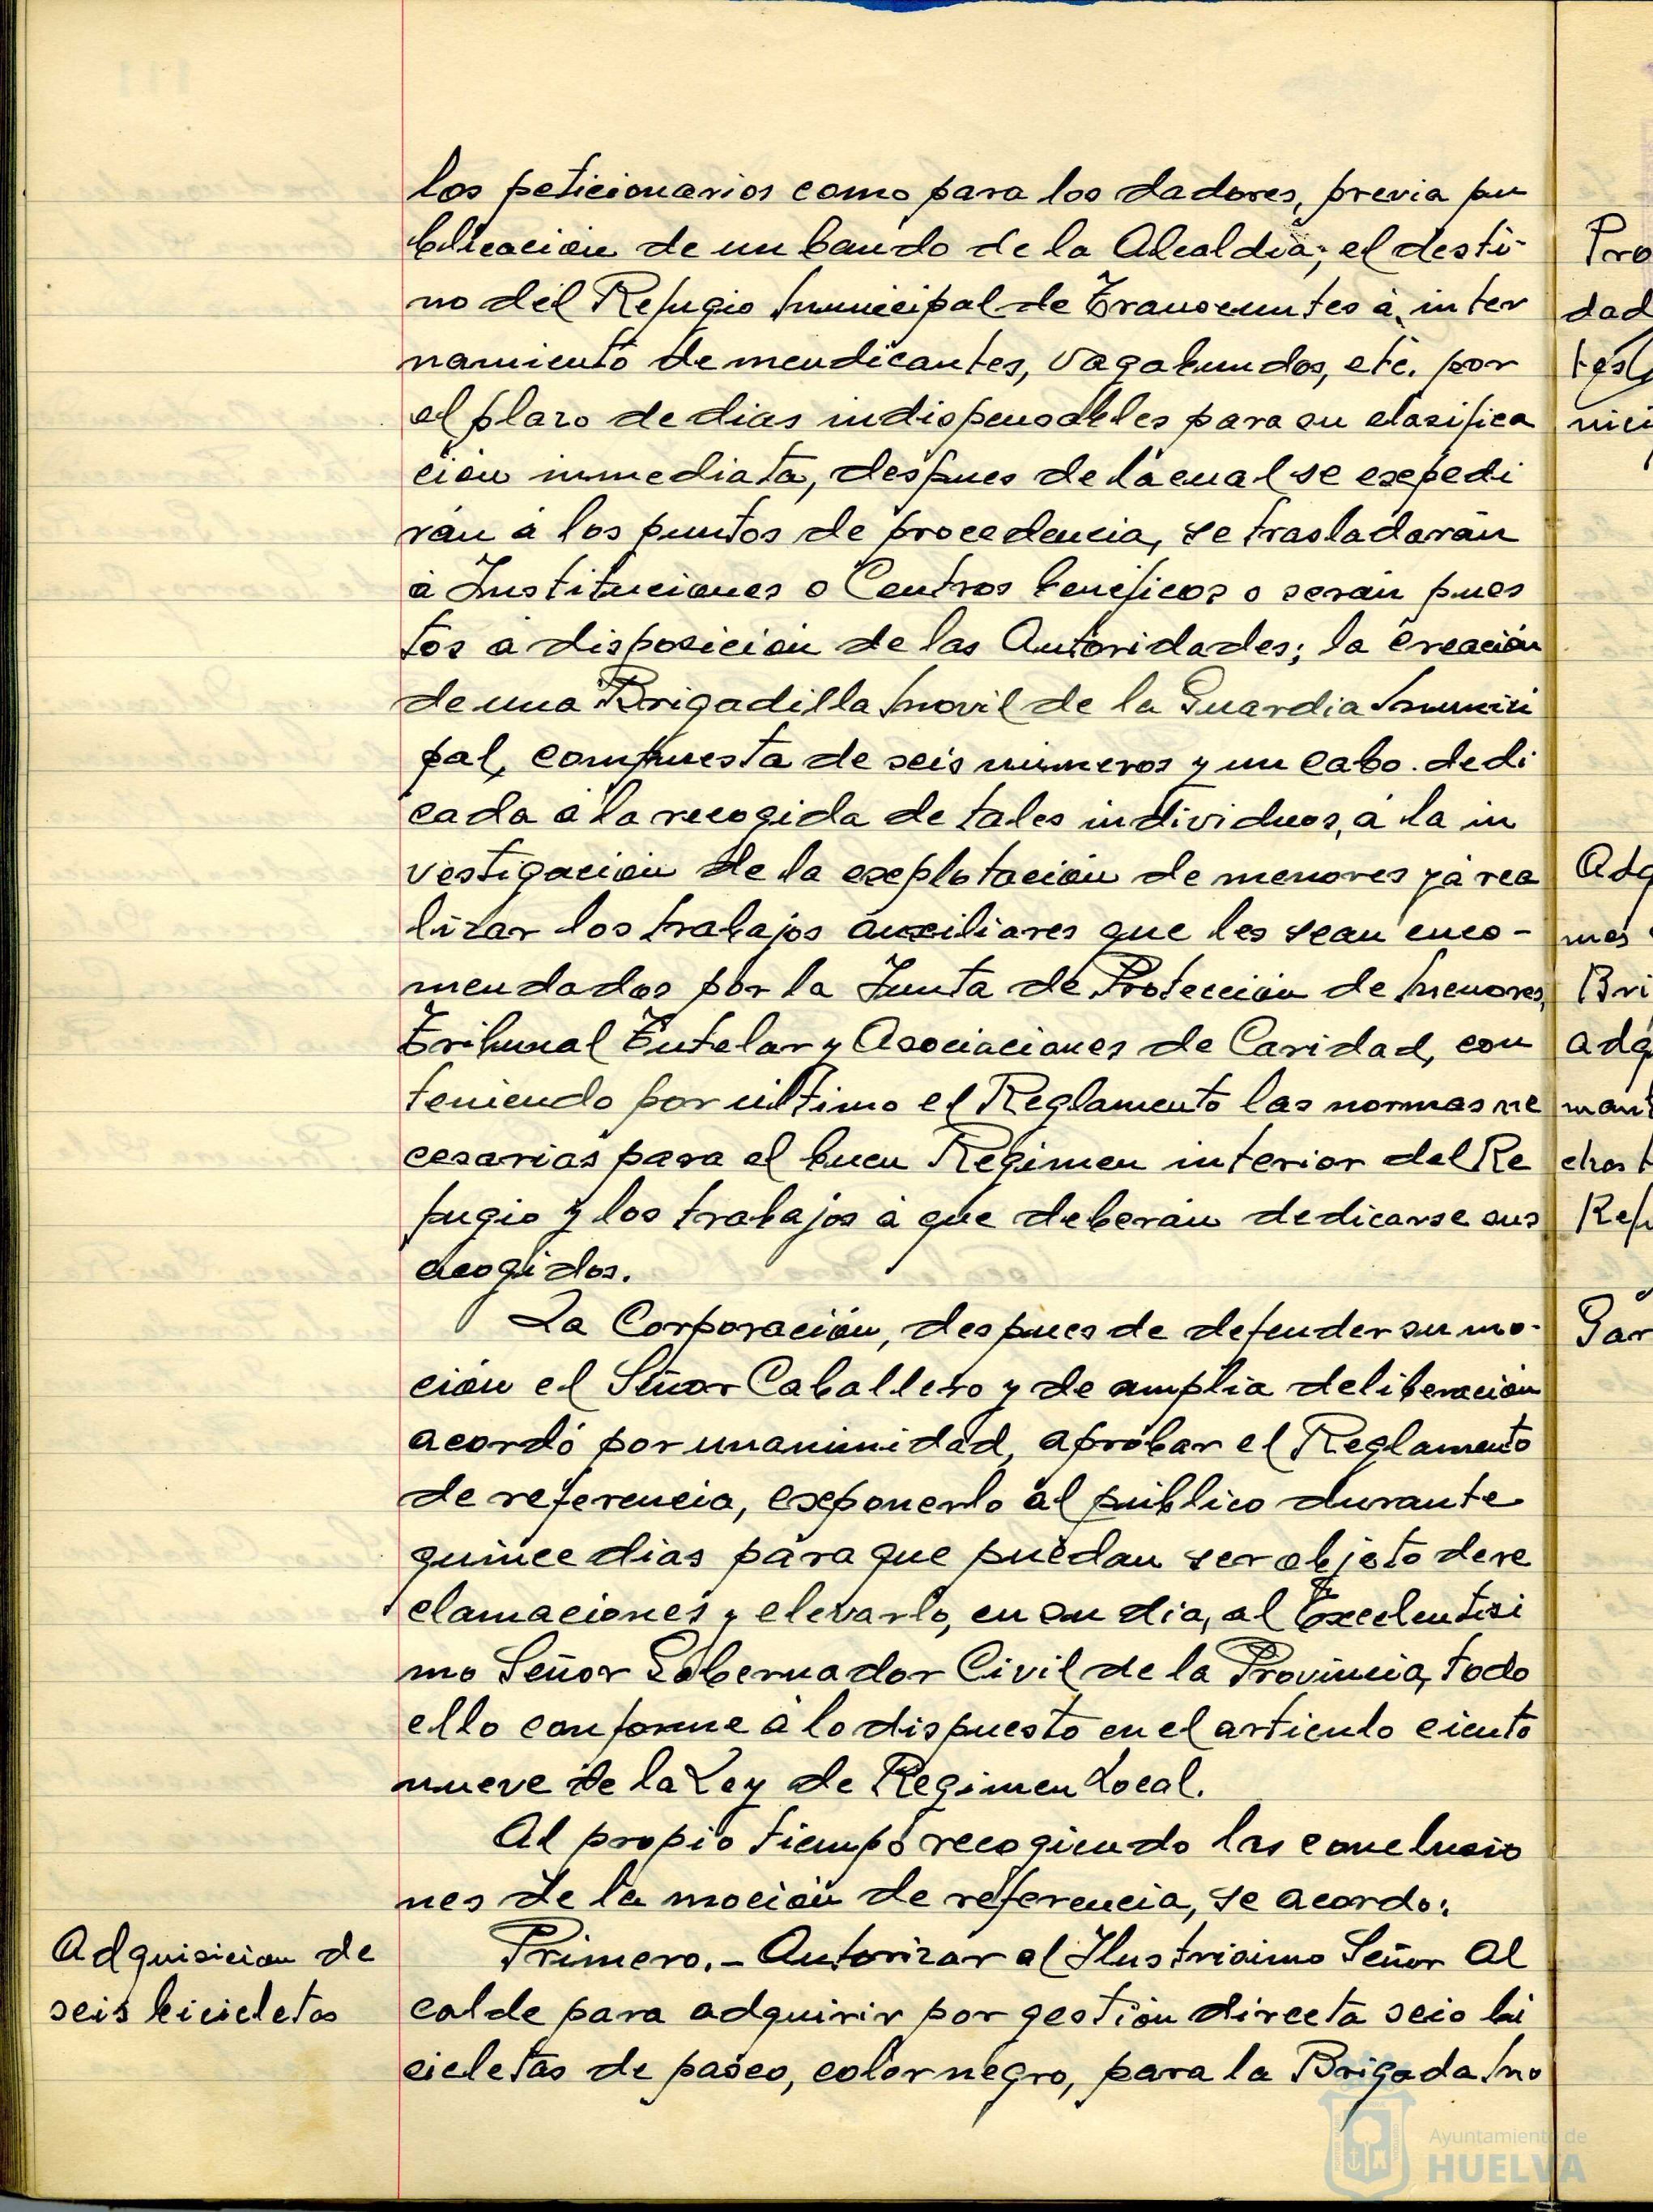 los peticionarios como para los dadores, previa pu
blicación de un bando de la Alcaldía; el desti-
no del Refugio Municipal de Transeuntes á inter
namiento de mendicantes, vagabundos, etc. por
el plazo de dias indispensables para su clasifica
ción inmediata, despues de la cual se expedi
rán á los puntos de procedencia, se trasladarán
á Instituciones o Centros benéficos o serán pues
tos á disposición de las Autoridades; la creación
de una Brigadilla Móvil de la Guardia Munici
pal, compuesta de seis números y un cabo. dedi
cada á la recogida de tales individuos, á la in
vestigación de la explotación de menores y á rea
lizar los trabajos auxiliares que les sean enco-
mendados por la Junta de Protección de Menores,
Tribunal Tutelar y Asociaciones de Caridad, con
teniendo por último el Reglamento las normas ne
cesarias para el buen Régimen interior del Re
fugio y los trabajos á que deberán dedicarse sus
acogidos.
La Corporación, despues de defender su mo-
ción el Señor Caballero y de amplia deliberación
acordó por unanimidad, aprobar el Reglamento
de referencia, exponerlo al público durante
quince dias para que puedan ser objeto de re
clamaciones y elevarlo, en su dia, al Excelentísi
mo Señor Gobernador Civil de la Provincia, todo
ello conforme á lo dispuesto en el articulo ciento
nueve de la Ley de Regimen Local.
Al propio tiempo recogiendo las conclusio
nes de la moción de referencia, se acordo:
Adquisicion de
seis bicicletas
Primero.- Autorizar al Ilustrisimo Señor Al
calde para adquirir por gestión directa seis bi
cicletas de paseo, color negro, para la Brigada Mo
Pro
dad
nici
Adq
mas
Bri
adq
mant
chos
Refu
Gar
Ayuntamiento de
HUELVA